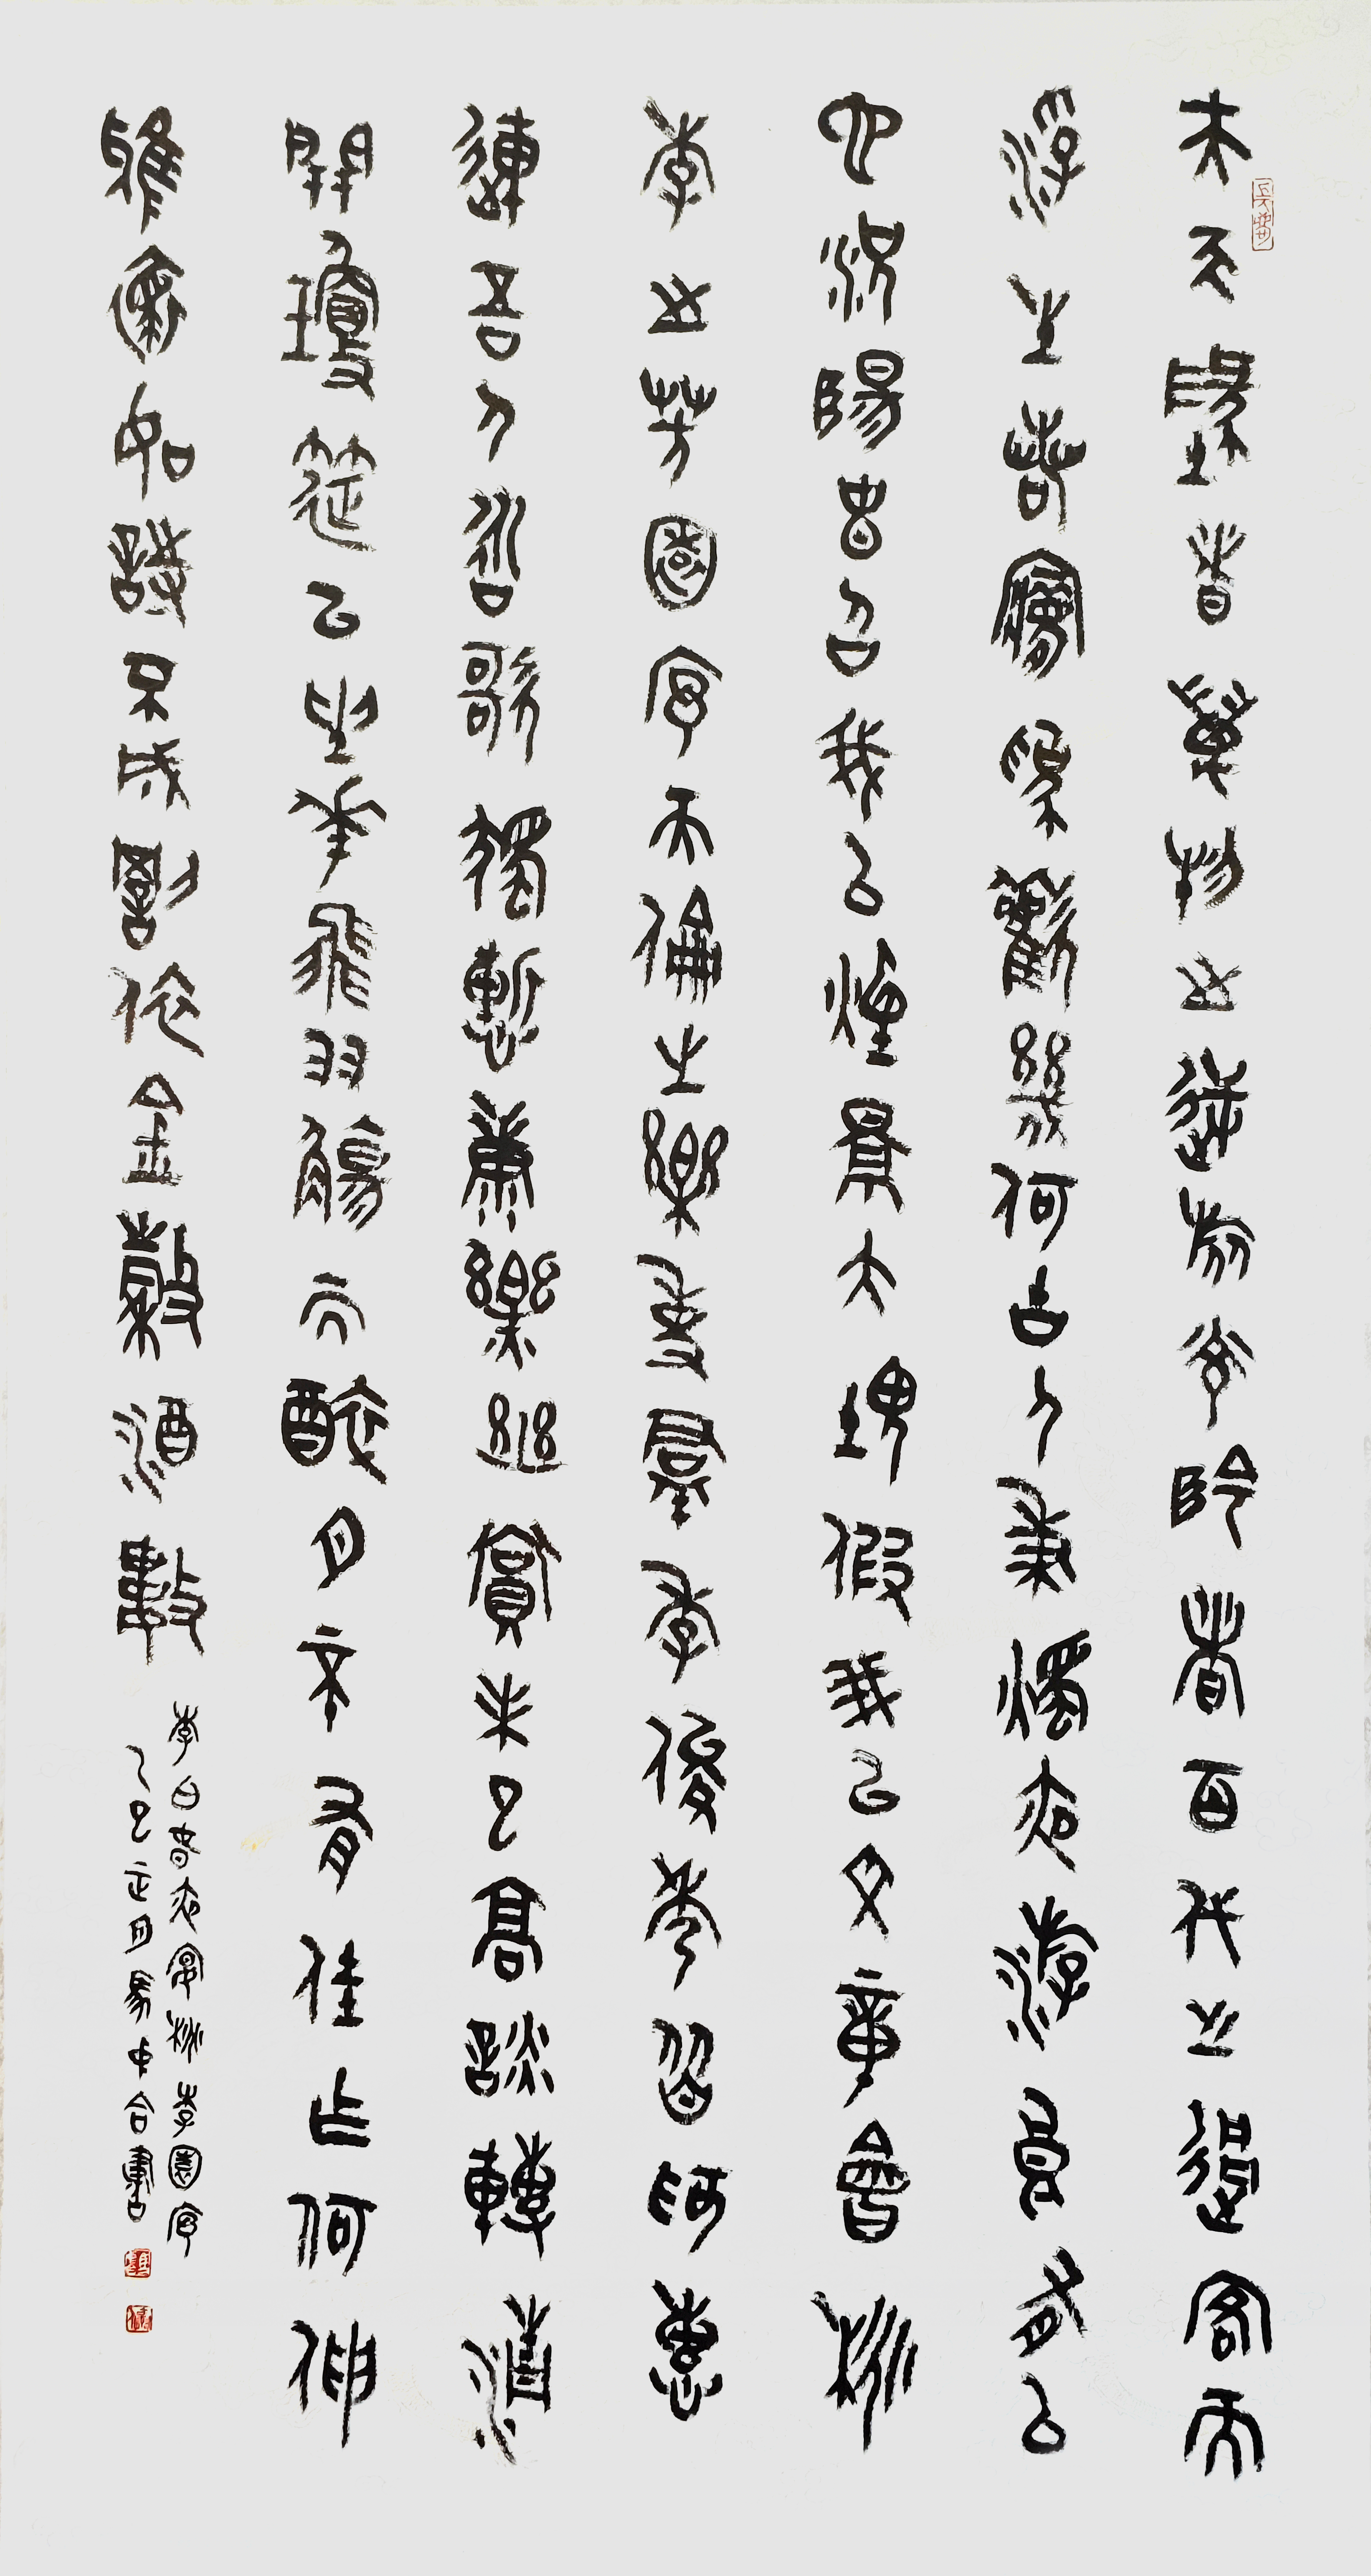 夫天地者萬物之逆旅光陰者百代之過客而
浮生若夢為歡幾何古人秉燭夜遊良有以
也況陽春召我以煙景大塊假我以文章會桃
李之芳園序天倫之樂事羣季俊秀皆為惠
連吾人詠歌獨慚康樂幽賞未已高談轉清
開瓊筵以坐花飛羽觴而醉月不有佳作何伸
雅懷如詩不成罰依金穀酒數
李白春夜宴桃李園序
乙巳正月馬中合書